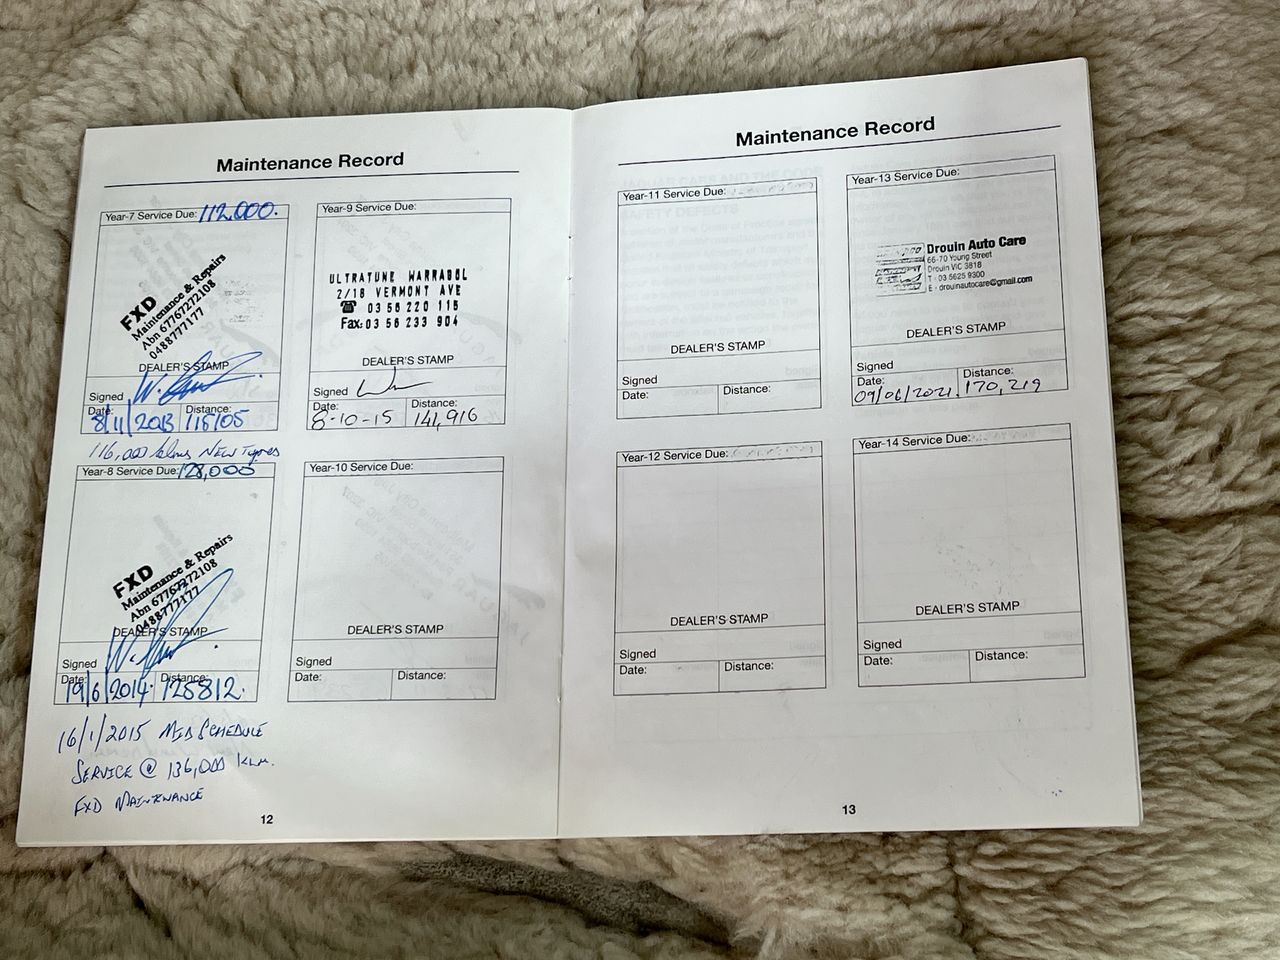 Maintenance Record
Year-7 Service Due: 112,000.
FXD
Maintenance & Repairs
Abn 67767272108
0488777177
DEALER'S STAMP
Signed
Date: Distance:
8/11/2013 115105
116,000 klms NEW Tyres
Year-8 Service Due: 128,000
FXD
Maintenance & Repairs
Abn 67767272108
0488777177
DEALER'S STAMP
Signed
Date: Distance:
19/6/2014. 125812.
16/1/2015 MID SCHEDULE
SERVICE @ 136,000 klm.
FXD MAINTENANCE
Year-9 Service Due:
ULTRATUNE WARRAGUL
2/16 VERMONT AVE
☎ 03 56 220 115
Fax: 03 56 233 904
DEALER'S STAMP
Signed
Date: Distance:
8-10-15 141,916
Year-10 Service Due:
DEALER'S STAMP
Signed
Date: Distance:
12
Maintenance Record
Year-11 Service Due:
DEALER'S STAMP
Signed
Date: Distance:
Year-12 Service Due:
DEALER'S STAMP
Signed
Date: Distance:
Year-13 Service Due:
Drouin Auto Care
66-70 Young Street
Drouin VIC 3818
T - 03 5625 9300
E - drouinautocare@gmail.com
DEALER'S STAMP
Signed
Date: Distance:
09/06/2021. 170,219
Year-14 Service Due:
DEALER'S STAMP
Signed
Date: Distance:
13